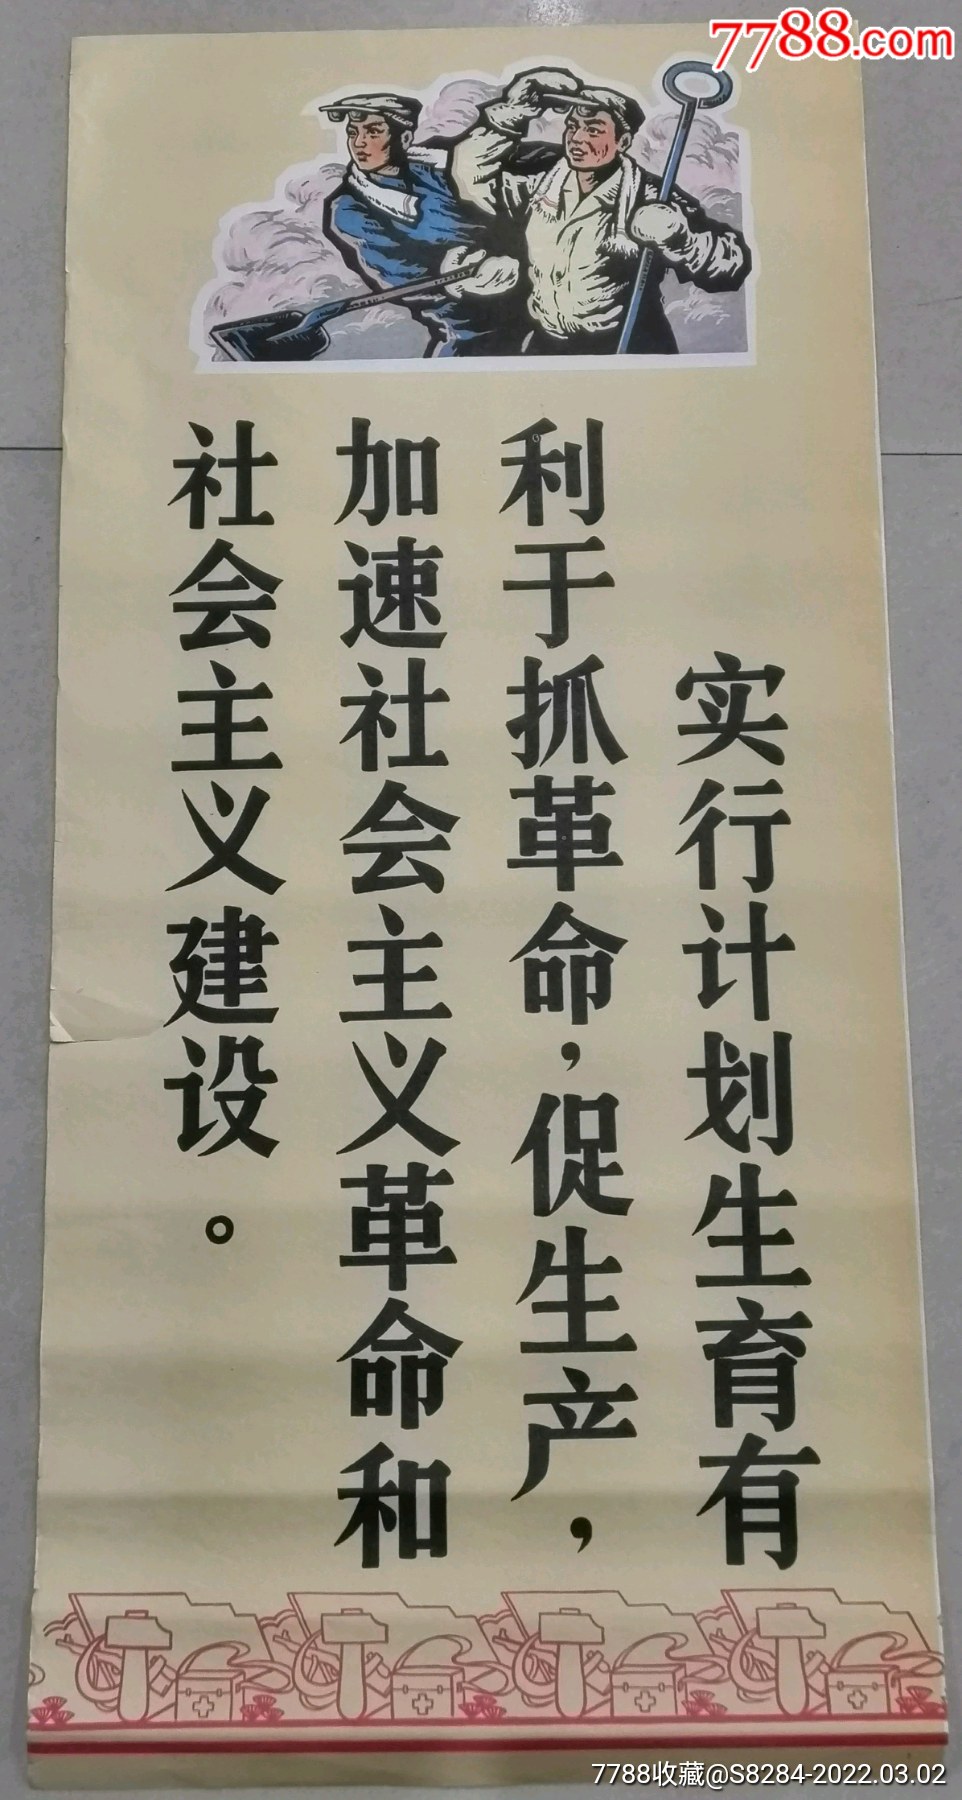 7788.com
实行计划生育有
利于抓革命，促生产，
加速社会主义革命和
社会主义建设。
7788收藏@S8284-2022.03.02